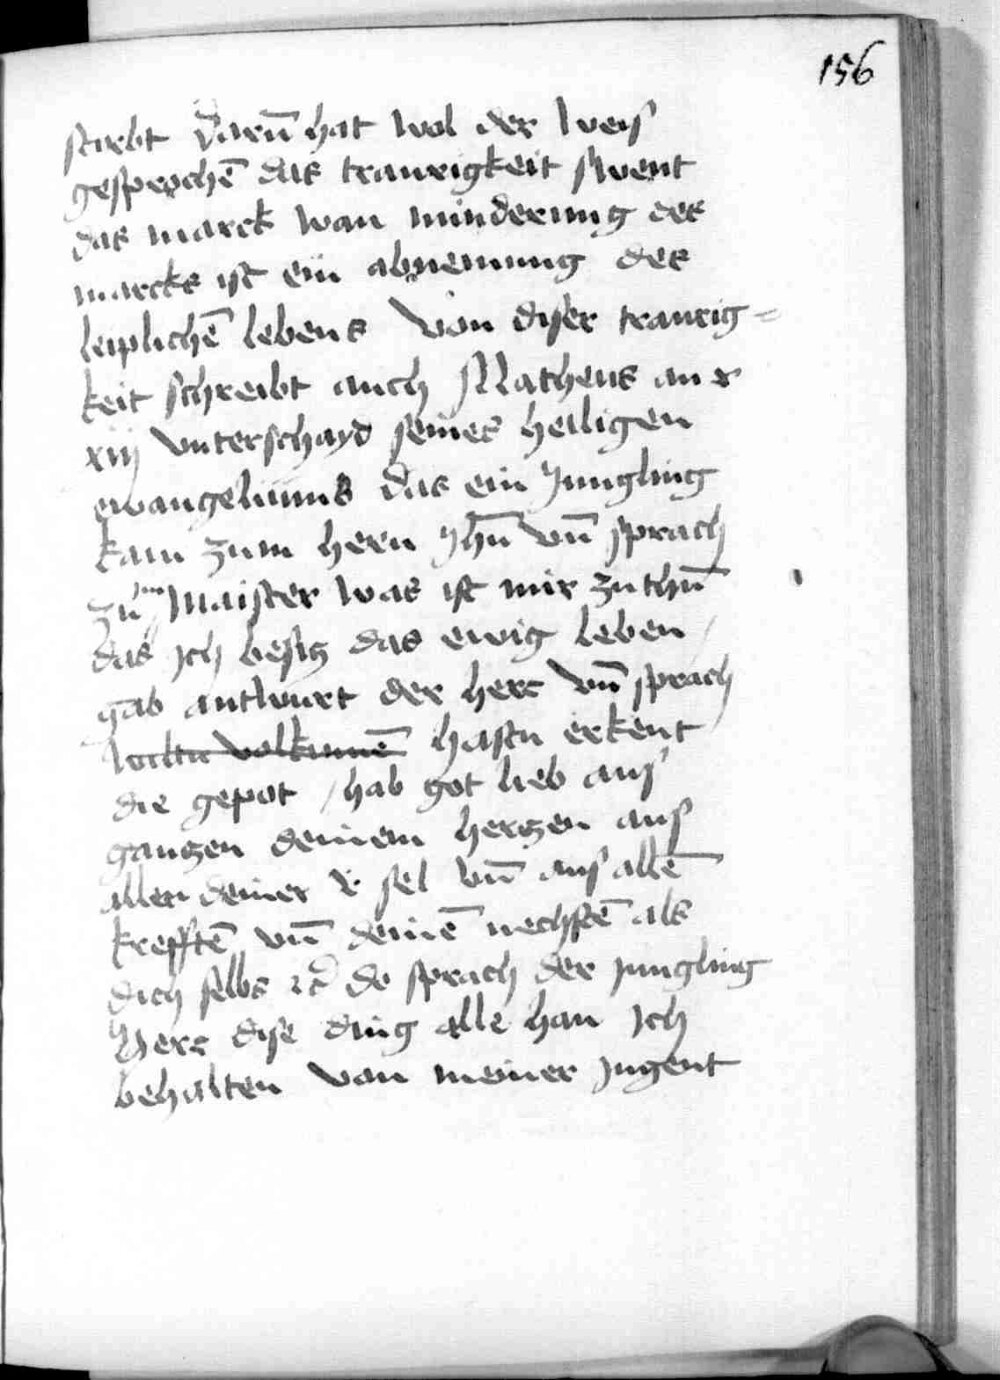 156
stirbt Darū hat wol der weis
gesprochē das traurigkeit swent
das marck wan minderung des
marcks ist ein abnemung des
leiplichē lebens Von diser traurig=
keit schreibt auch Matheus an
xiij vnterschayd seines heiligen
ewangeliums das ein Jungling
kam zum hern yhū vn̄ sprach
zu im Maister was ist mir zu thun̄
das ich besitz das ewig leben /
gab antwurt der herr vn̄ sprach
wiltu volkumē hastu erkent
die gepot / hab got lieb aus
gantzen deinem hertzen aus
aller deiner sel vn̄ aus allē
krefftē vn̄ deinē nechstē als
dich selbs ꝛc̄ do sprach der Jungling
Herr dise ding alle han Ich
behalten von meiner Jugent